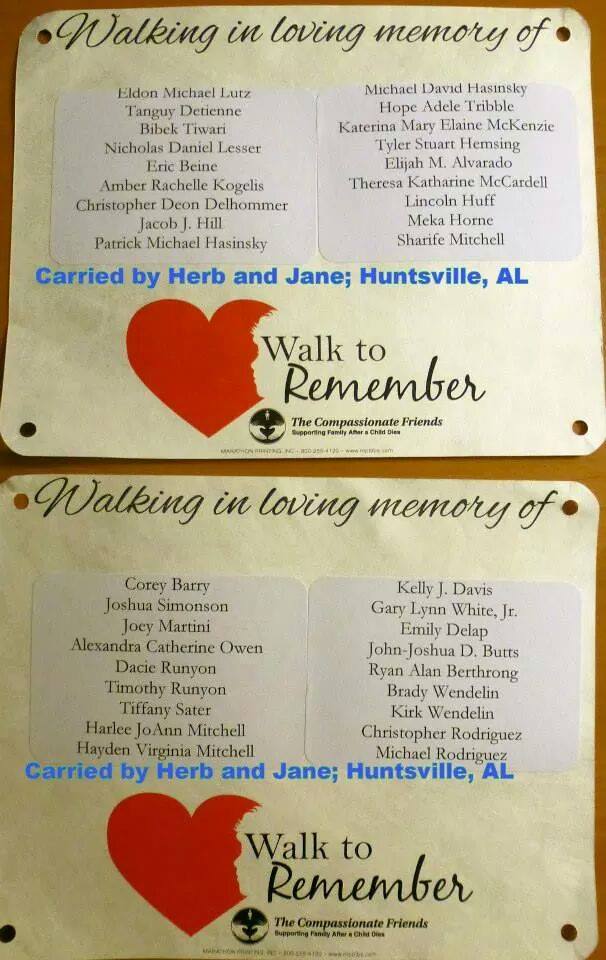 Walking in loving memory of
Eldon Michael Lutz
Tanguy Detienne
Bibek Tiwari
Nicholas Daniel Lesser
Eric Beine
Amber Rachelle Kogelis
Christopher Deon Delhommer
Jacob J. Hill
Patrick Michael Hasinsky
Michael David Hasinsky
Hope Adele Tribble
Katerina Mary Elaine McKenzie
Tyler Stuart Hemsing
Elijah M. Alvarado
Theresa Katharine McCardell
Lincoln Huff
Meka Horne
Sharife Mitchell
Carried by Herb and Jane; Huntsville, AL
Walk to
Remember
The Compassionate Friends
Supporting Family After a Child Dies
MARATHON PRINTING, INC - 800-259-4120 -
Walking in loving memory of
Corey Barry
Joshua Simonson
Joey Martini
Alexandra Catherine Owen
Dacie Runyon
Timothy Runyon
Tiffany Sater
Harlee JoAnn Mitchell
Hayden Virginia Mitchell
Kelly J. Davis
Gary Lynn White, Jr.
Emily Delap
John-Joshua D. Butts
Ryan Alan Berthrong
Brady Wendelin
Kirk Wendelin
Christopher Rodriguez
Michael Rodriguez
Carried by Herb and Jane; Huntsville, AL
Walk to
Remember
The Compassionate Friends
Supporting Family After a Child Dies
MARATHON PRINTING, INC - 800-259-4120 -